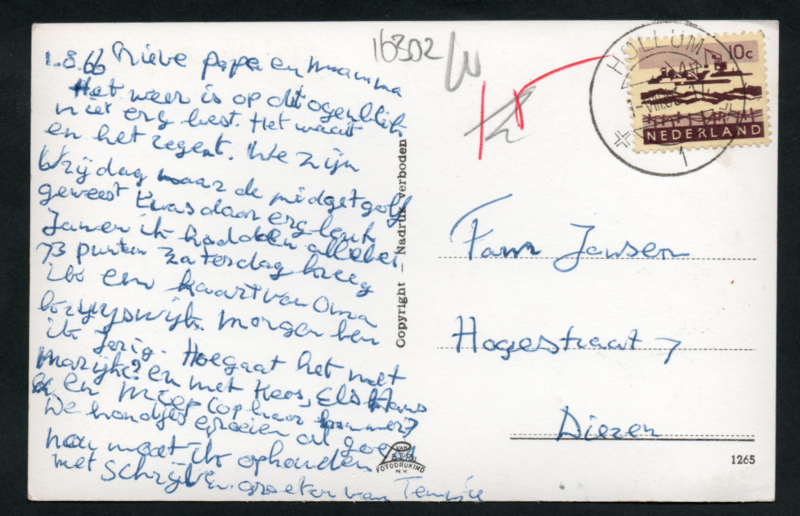 1.8.66 Lieve papa en mamma
Het weer is op dit ogenblik
niet erg best. Het waait
en het regent. We zijn
Vrijdag naar de midgetgolf
geweest t was daar erg leuk
Jan en ik hadden allebei
73 punten Zaterdag kreeg
ik een kaart van Oma
Morgen ben
ik jarig. Hoe gaat het met
Marijke? en met Koos, Els Hans
en Miep (op haar kamer?
De hondjes groeien al goed
nou moet ik ophouden
met schrijven groeten van
Copyright – Nadruk verboden
16302
HOLLUM
10c
NEDERLAND
1
Fam Jansen
Hogestraat 7
Diezen
VAN
FOTODRUKIND
N.V.
1265